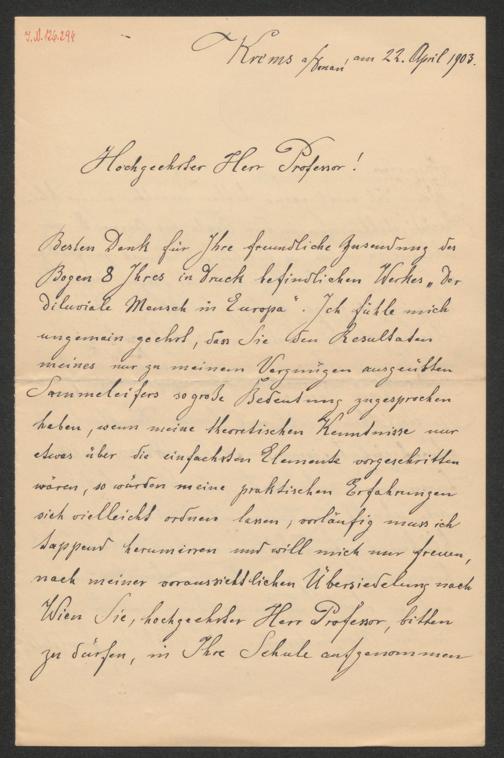 J.N. 126.294
Krems a/Donau, am 22. April 1903.
Hochgeehrter Herr Professor!
Besten Dank für Ihre freundliche Zusendung des
Bogen 8 Ihres in Druck befindlichen Werkes „Der
diluviale Mensch in Europa“. Ich fühle mich
ungemein geehrt, dass Sie den Resultaten
meines nur zu meinem Vergnügen ausgeübten
Sammeleifers so große Bedeutung zugesprochen
haben, wenn meine theoretischen Kenntnisse nur
etwas über die einfachsten Elemente vorgeschritten
wären, so würden meine praktischen Erfahrungen
sich vielleicht ordnen lassen; vorläufig muss ich
tappend herumirren und will mich nur freuen,
nach meiner voraussichtlichen Übersiedelung nach
Wien Sie, hochgeehrter Herr Professor, bitten
zu dürfen, in Ihre Schule aufgenommen